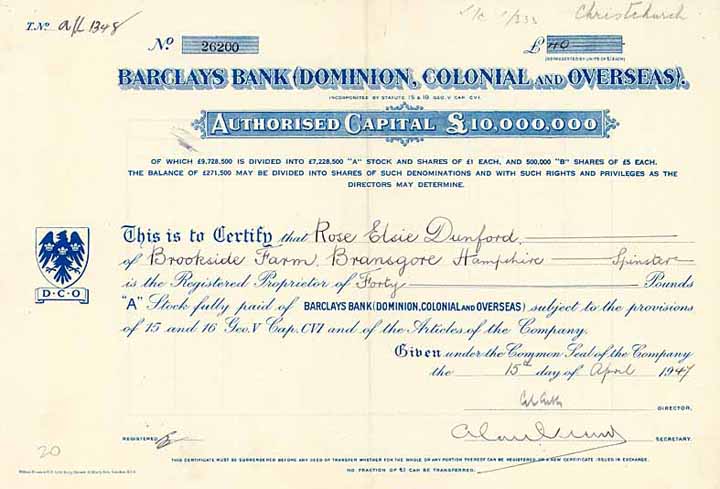 T.No a/L 1348
Christchurch
No 26200
£ 40
(REPRESENTED BY UNITS OF £1 EACH)
BARCLAYS BANK (DOMINION, COLONIAL AND OVERSEAS).
INCORPORATED BY STATUTE 15 & 16 GEO. V CAP. CVI.
AUTHORISED CAPITAL £10,000,000
OF WHICH £9,728,500 IS DIVIDED INTO £7,228,500 "A" STOCK AND SHARES OF £1 EACH, AND 500,000 "B" SHARES OF £5 EACH.
THE BALANCE OF £271,500 MAY BE DIVIDED INTO SHARES OF SUCH DENOMINATIONS AND WITH SUCH RIGHTS AND PRIVILEGES AS THE
DIRECTORS MAY DETERMINE.
This is to Certify that Rose Elsie Dunford,
of Brookside Farm, Bransgore Hampshire Spinster
is the Registered Proprietor of Forty Pounds
"A" Stock fully paid of BARCLAYS BANK (DOMINION, COLONIAL AND OVERSEAS) subject to the provisions
of 15 and 16 Geo. V Cap. CVI and of the Articles of the Company.
D·C·O
Given under the Common Seal of the Company
the 15th day of April 1947
DIRECTOR,
REGISTERED
SECRETARY.
20
THIS CERTIFICATE MUST BE SURRENDERED BEFORE ANY DEED OF TRANSFER WHETHER FOR THE WHOLE OR ANY PORTION THEREOF CAN BE REGISTERED, OR A NEW CERTIFICATE ISSUED IN EXCHANGE.
NO FRACTION OF £1 CAN BE TRANSFERRED.